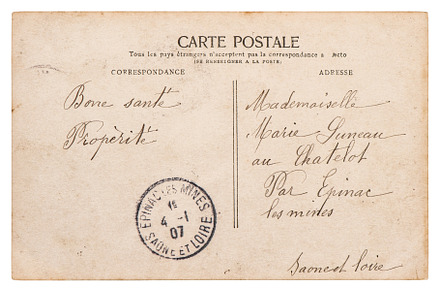 CARTE POSTALE
Tous les pays étrangers n'acceptent pas la correspondance a
(SE RENSEIGNER A LA POSTE)
CORRESPONDANCE
Bone santé
Propèrité
ADRESSE
Mademoiselle
Marie Suneau
au Chatelot
Par Epinac
les mines
Saone et loire
EPINAC-LES-MINES
4 -1
07
SAONE ET LOIRE